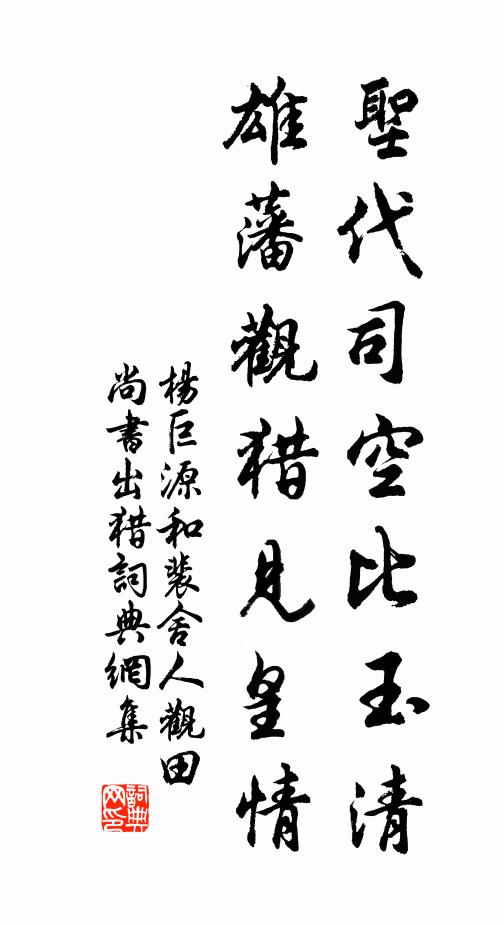 聖代司空比玉清
雄藩觀猎見皇情
楊巨源和裴舍人觀田
尚書出猎詞典網集
詞典网印